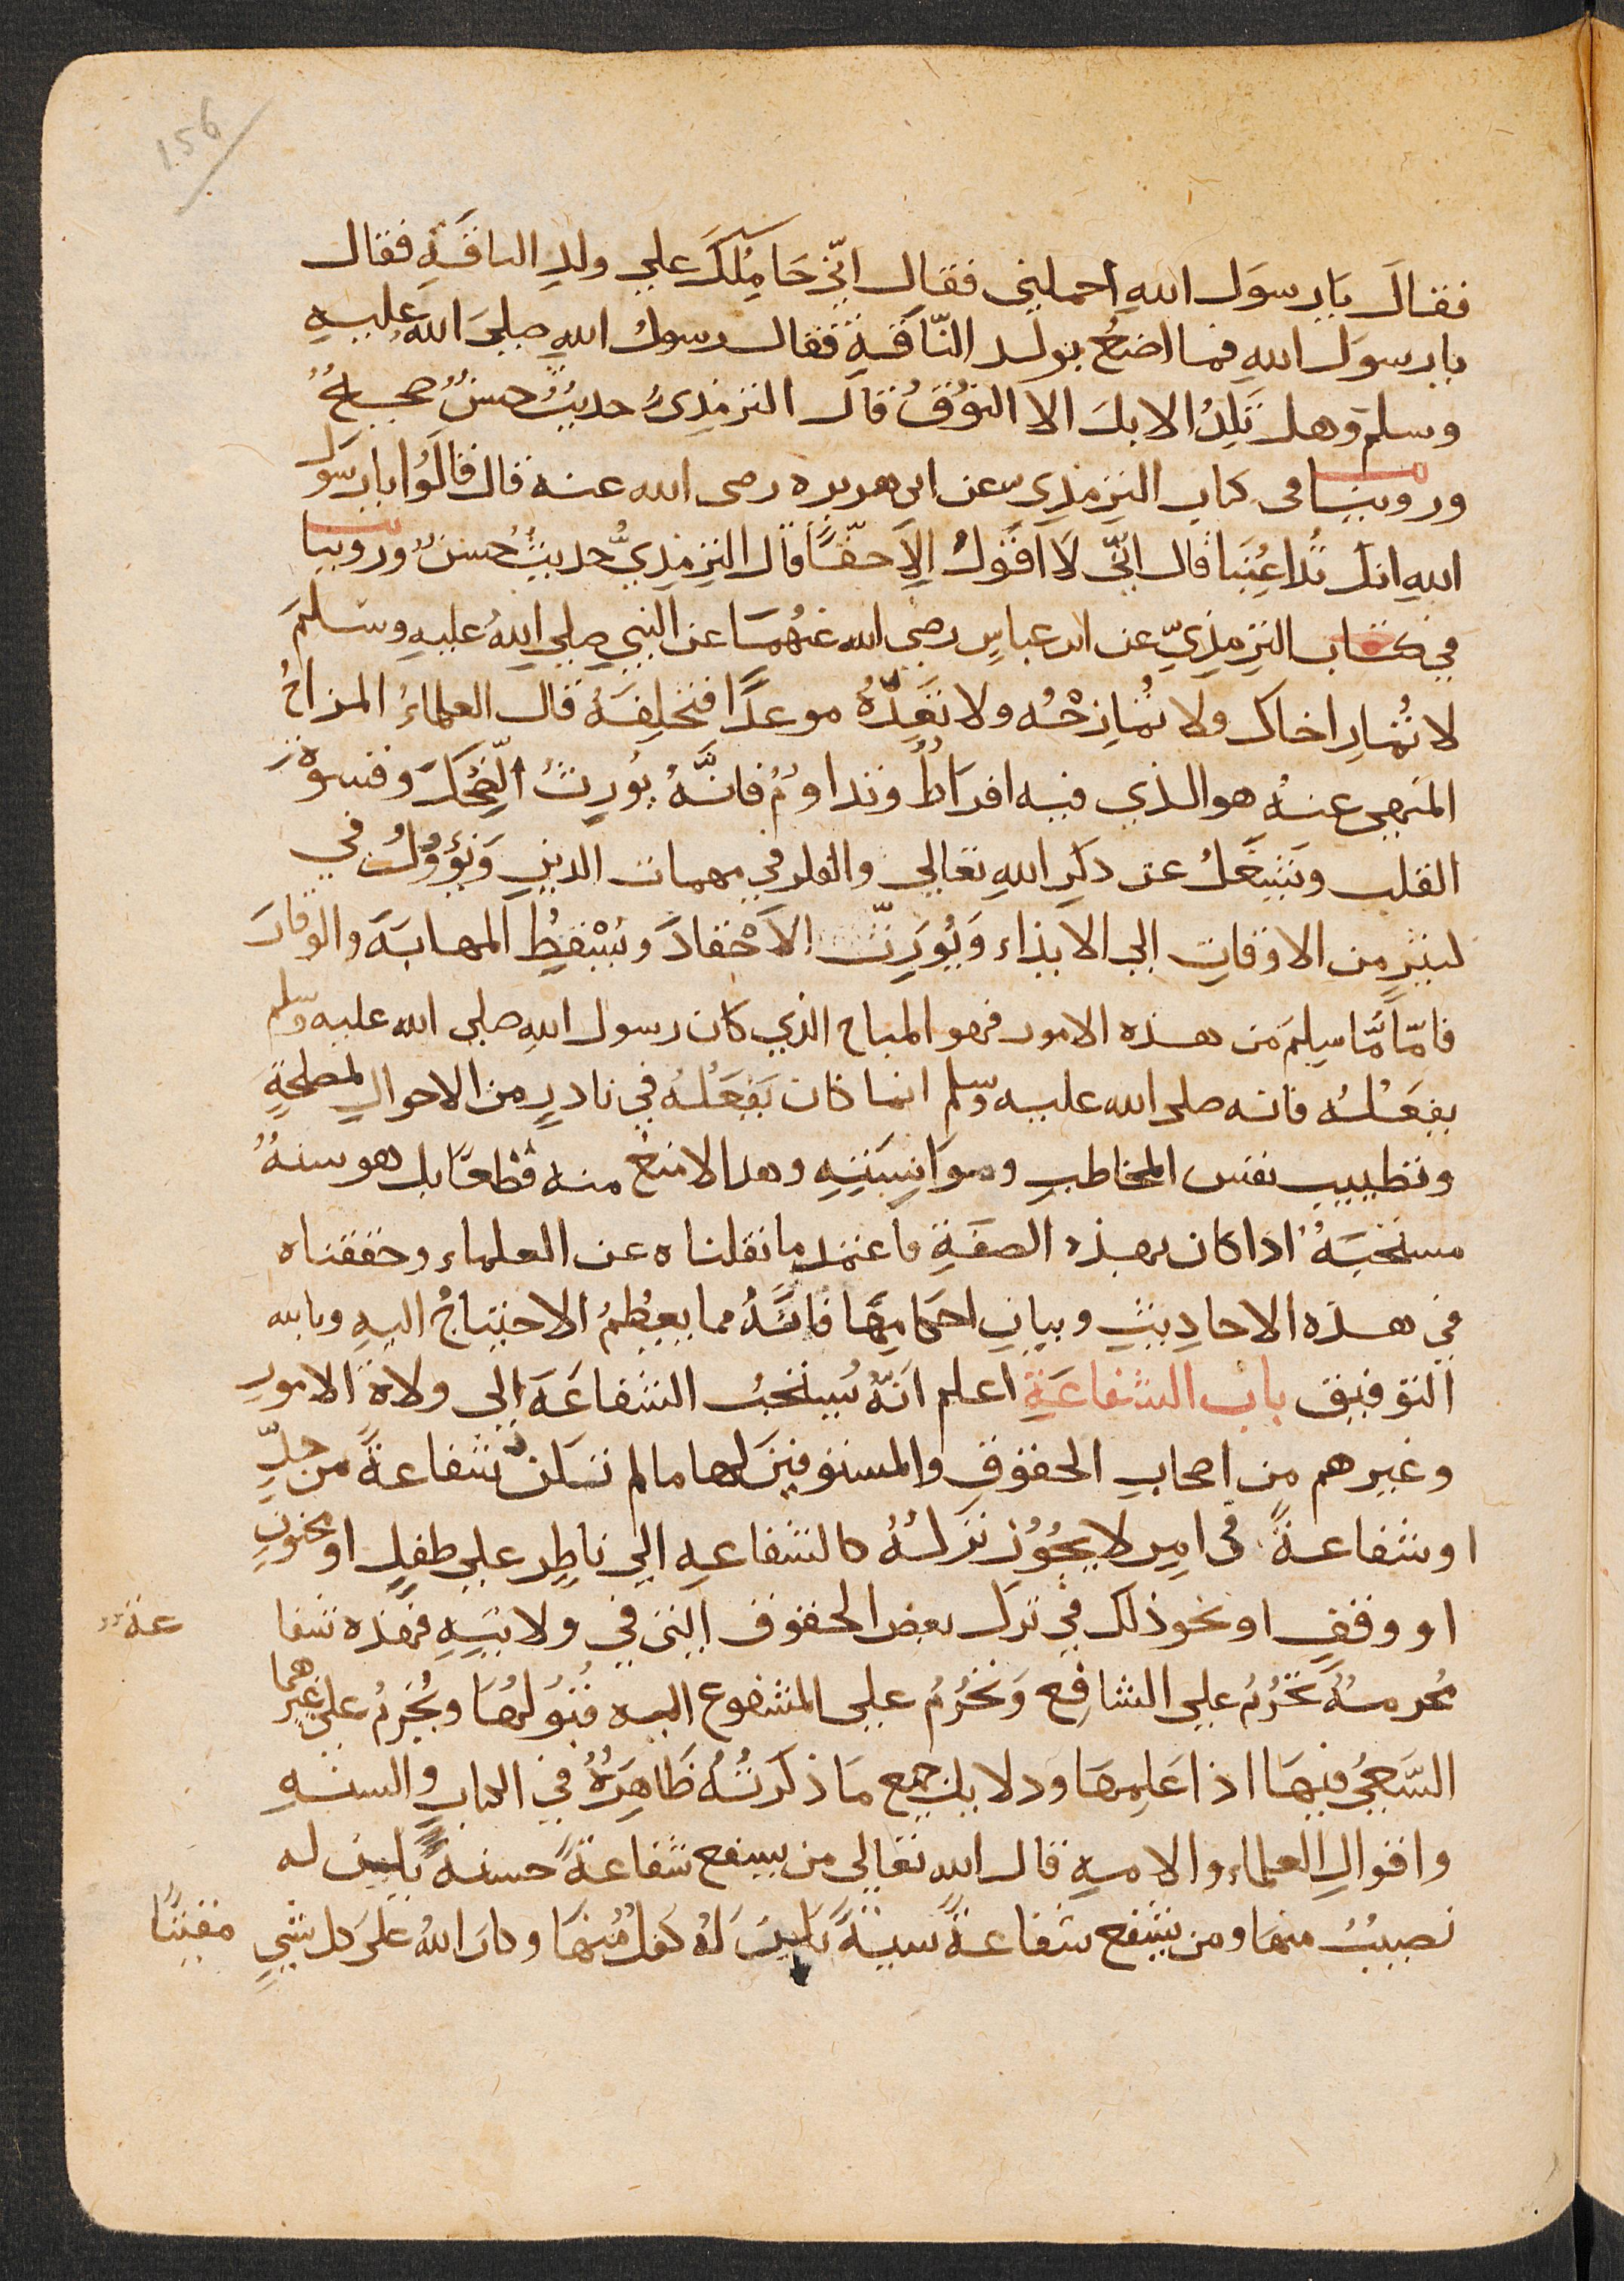 156
فقالَ يَا رسوَل اللهِ احملني فقال انّي حَامِلُكَ علي ولدِ الناقَةِ فقال
يا رسوَل اللهِ فما اصنعُ بولد النّاقةِ فقال رسولُ اللهِ صلىَ اللهُ عليهِ
وسلم وهل تَلِدُ الابلَ الا النوُقُ قالَ الترمذِىُّ حديثٌ حسنٌ صحيحٌ
وروينا فى كتاب الترمذِي عن ابى هريره رضى الله عنه قال قالَوُا يا رسَوَل
اللهِ انك تُداعِبُنَا قال انّي لاَ اقَوُلُ الاَ حقّاً قال الترمِذِيُّ حديثٌ حُسنٌ وروينا
في كتاب الترمِذِيّ عن ابن عباسٍ رضى الله عنهُمَا عن النبي صلي اللهُ عليهِ وسَلمَ
لا تُمارِ اخاك ولا تُمازِحْهُ ولا تَعِدْهُ موعدًا فتخلِفَهُ قال العلماءُ المزاحُ
المنهي عنهُ هو الذي فيه افراطٌ وتداوُمٌ فانَّهُ يُورِثُ الضِحكَ وقسوة
القلب ويَشِغَلُ عن ذكرِ اللهِ تعالي والفكر في مهمات الدينِ وَيَؤوُلُ في
كثيرٍ من الاوقاتِ الي الايذاء وَيُورِثُ الاَحْقادَ ويُسْقطُِ المهابَةَ والوقارَ
فامّا مَّا سلِمَ من هذه الامور فهو المباح الذي كان رسول اللهِ صلى الله عليه وسلم
يفعَلُه فانه صلى الله عليه وسلم انما كان يَفعَلُهُ في نادرٍ من الاحوالِ لمصلحةٍ
وتطييبِ نفس المخاطبِ وموَانسَتِهِ وهذا لا منعَ منه قطعًا بل هو سنةٌ
مستحَبَةٌ اذا كان بهذه الصفَةِ فاعتمد ما نقلناه عن العلماء وحققناه
في هذه الاحاديثِ وبيانِ احكامِهَا فانّهُ مما يعظُمُ الاحتِياجُ اليهِ وبالله
التوفيق باب الشفاعَةِ اعلم انَهُّ يُستحَبُ الشفاعَةَ إلى ولاةَ الامورِ
وغيرهم من اصحابِ الحقوقِ والمستوفِينَ لها ما لم تكن شفاعةً من حدٍّ
او شفاعةً في امرٍ لا يجُوُزُ تركُهُ كالشفاعهِ الي ناظِر علي طفلٍ او مجنونٍ
او وقفٍ او نحو ذلك في ترك بعض الحقوق التي في ولايتِهِ فهذه شفا عة
مُحرمَةٌ تحَرُمُ علي الشافِع وَتحَرُمُ على المشفوع اليه قُبُولهُا ويُحَرمُ علي غيرهما
السَّعيُ فيهَا اذا عَلِمهَا ودلايل جميع مَا ذكَرتُهُ ظَاهِرَةٌ في الكتابِ والسنهِ
واقوالِ العلماء والامهِ قال الله تعالي من يشفع شفاعةً حسنةً يكن له
نصيبٌ منهَا ومن يشفع شفاعةً سيئةً يَكنَ لَهُ كفلٌ مِنها وكانَ اللهُ علىَ كل شىٍ مقيتًا